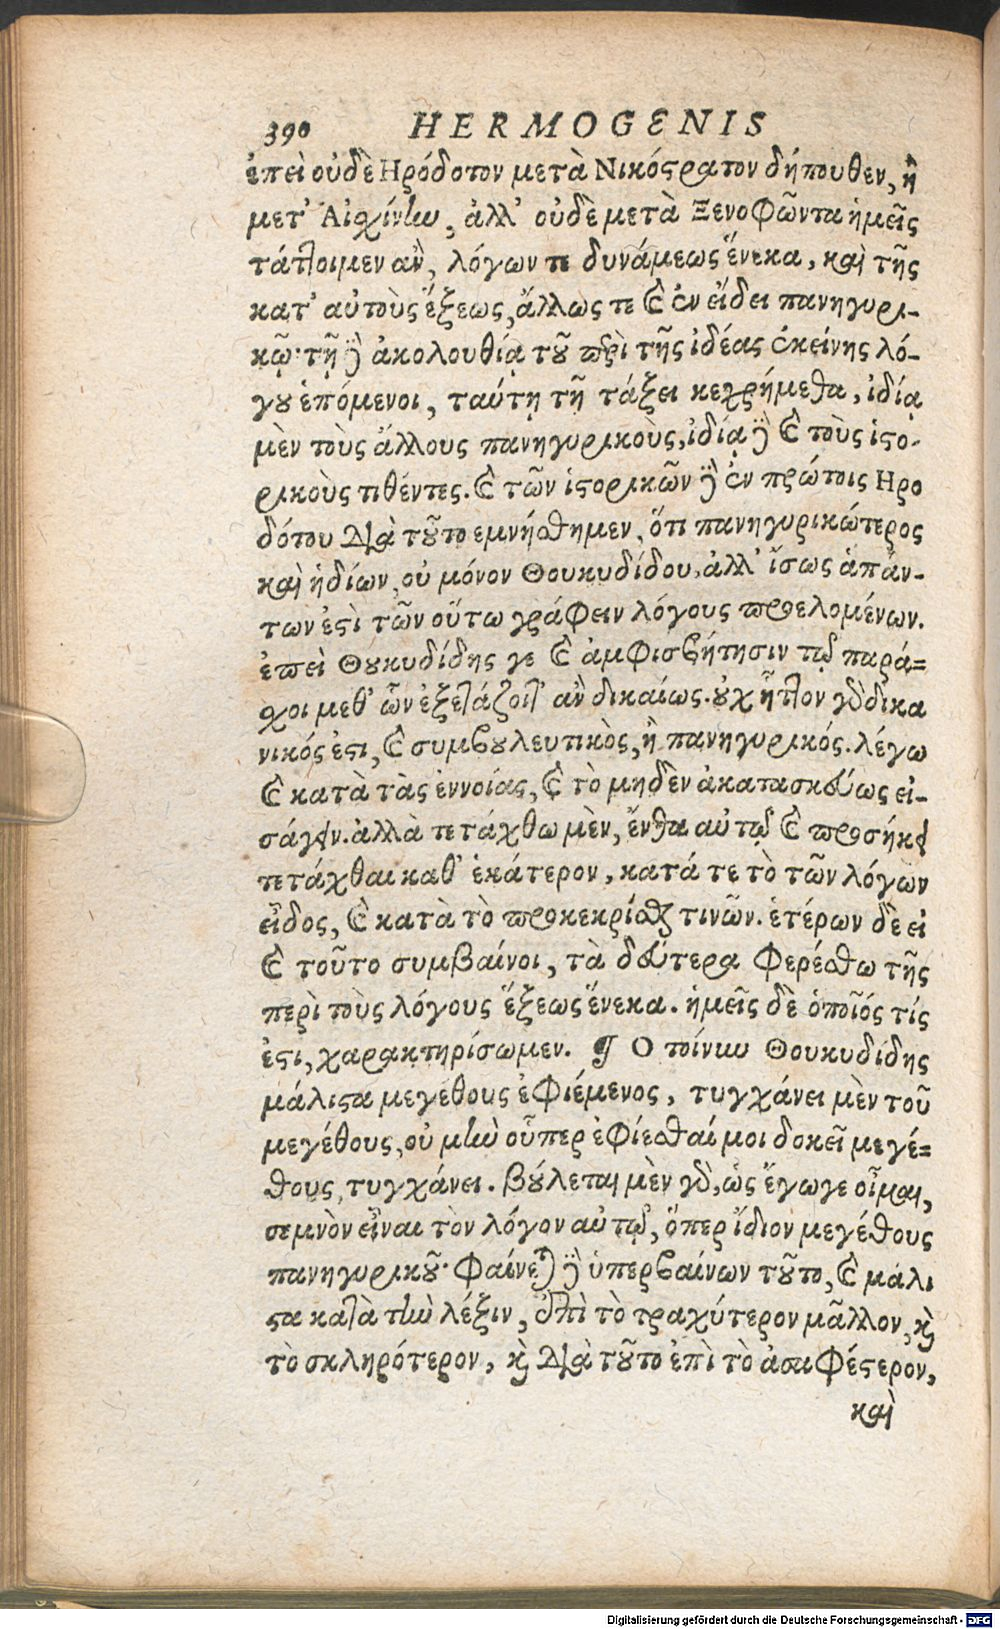 390 HERMOGENIS
ἐπεὶ οὐδὲ Ηρόδοτον μετὰ Νικόστρατον δήπουθεν, ἢ
μετ’ Αἰσχίνην, ἀλλ’ οὐδὲ μετὰ Ξενοφῶντα ἡμεῖς
τάττοιμεν ἂν, λόγων τε δυνάμεως ἕνεκα, καὶ τῆς
κατ’ αὐτοὺς ἕξεως, ἄλλως τε καὶ ἐν εἴδει πανηγυρι-
κῷ· τῇ δὲ ἀκολουθίᾳ τοῦ περὶ τῆς ἰδέας ἐκείνης λό-
γου ἑπόμενοι, ταύτῃ τῇ τάξει κεχρήμεθα, ἰδίᾳ
μὲν τοὺς ἄλλους πανηγυρικοὺς, ἰδίᾳ δὲ καὶ τοὺς ἱστο-
ρικοὺς τιθέντες. καὶ τῶν ἱστορικῶν δὲ ἐν πρώτοις Ηρο
δότου διὰ τοῦτο εμνήσθημεν, ὅτι πανηγυρικώτερος
καὶ ἡδίων, οὐ μόνον Θουκυδίδου, ἀλλ’ ἴσως ἁπάν-
των ἐστὶ τῶν οὕτω γράφειν λόγους προελομένων.
ἐπεὶ Θουκυδίδης γε καὶ ἀμφισβήτησιν τῳ παρά-
σχοι μεθ’ ὧν ἐξετάζοιτ’ ἂν δικαίως. οὐχ ἧττον γὰρ δικα
νικός ἐστι, καὶ συμβουλευτικὸς, ἢ πανηγυρικός. λέγω
καὶ κατὰ τὰς ἐννοίας, καὶ τὸ μηδὲν ἀκατασκεύως εἰ-
σάγειν. ἀλλὰ τετάχθω μὲν, ἔνθα αὐτῷ καὶ προσήκει
τετάχθαι καθ’ ἑκάτερον, κατά τε τὸ τῶν λόγων
εἶδος, καὶ κατὰ τὸ προκεκρίσθαι τινῶν. ἑτέρων δὲ εἰ
καὶ τοῦτο συμβαίνοι, τὰ δεύτερα φερέσθω τῆς
περὶ τοὺς λόγους ἕξεως ἕνεκα. ἡμεῖς δὲ ὁποῖός τίς
ἐστι, χαρακτηρίσωμεν. ¶ Ο τοίνυν Θουκυδίδης
μάλιστα μεγέθους ἐφιέμενος, τυγχάνει μὲν τοῦ
μεγέθους, οὐ μὴν οὗπερ ἐφίεσθαί μοι δοκεῖ μεγέ-
θους, τυγχάνει. βούλεται μὲν γὰρ, ὡς ἔγωγε οἶμαι,
σεμνὸν εἶναι τὸν λόγον αὐτῷ, ὅπερ ἴδιον μεγέθους
πανηγυρικοῦ· φαίνεται δὲ ὑπερβαίνων τοῦτο, καὶ μάλι
στα κατὰ τὴν λέξιν, ἐπὶ τὸ τραχύτερον μᾶλλον, καὶ
τὸ σκληρότερον, καὶ διὰ τοῦτο ἐπὶ τὸ ἀσαφέστερον,
καὶ
Digitalisierung gefördert durch die Deutsche Forschungsgemeinschaft - DFG